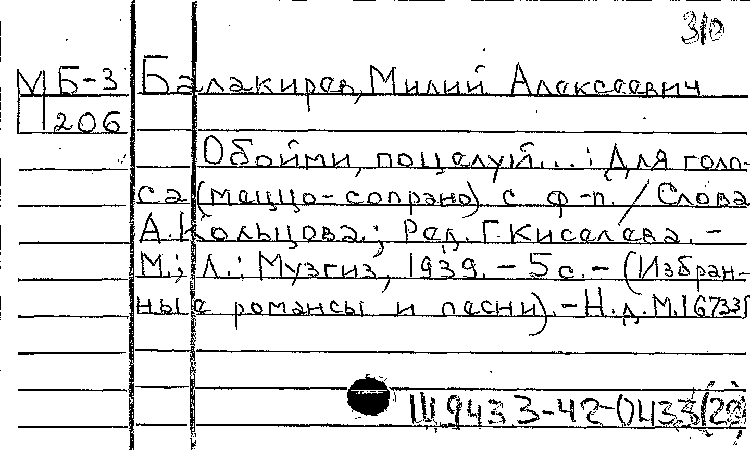 310
М Б-3 Балакирев, Милий Алексеевич
Ц 206
Обойми, поцелуй...: Для голо-
са (меццо-сопрано) с ф-п. / Слова
А. Кольцова.; Ред. Г. Киселева. -
М.; Л.: Музгиз, 1939. - 5 с. - (Избран-
ные романсы и песни). - Н.д. М.16733г
Ш 943 3-42-0433(2)